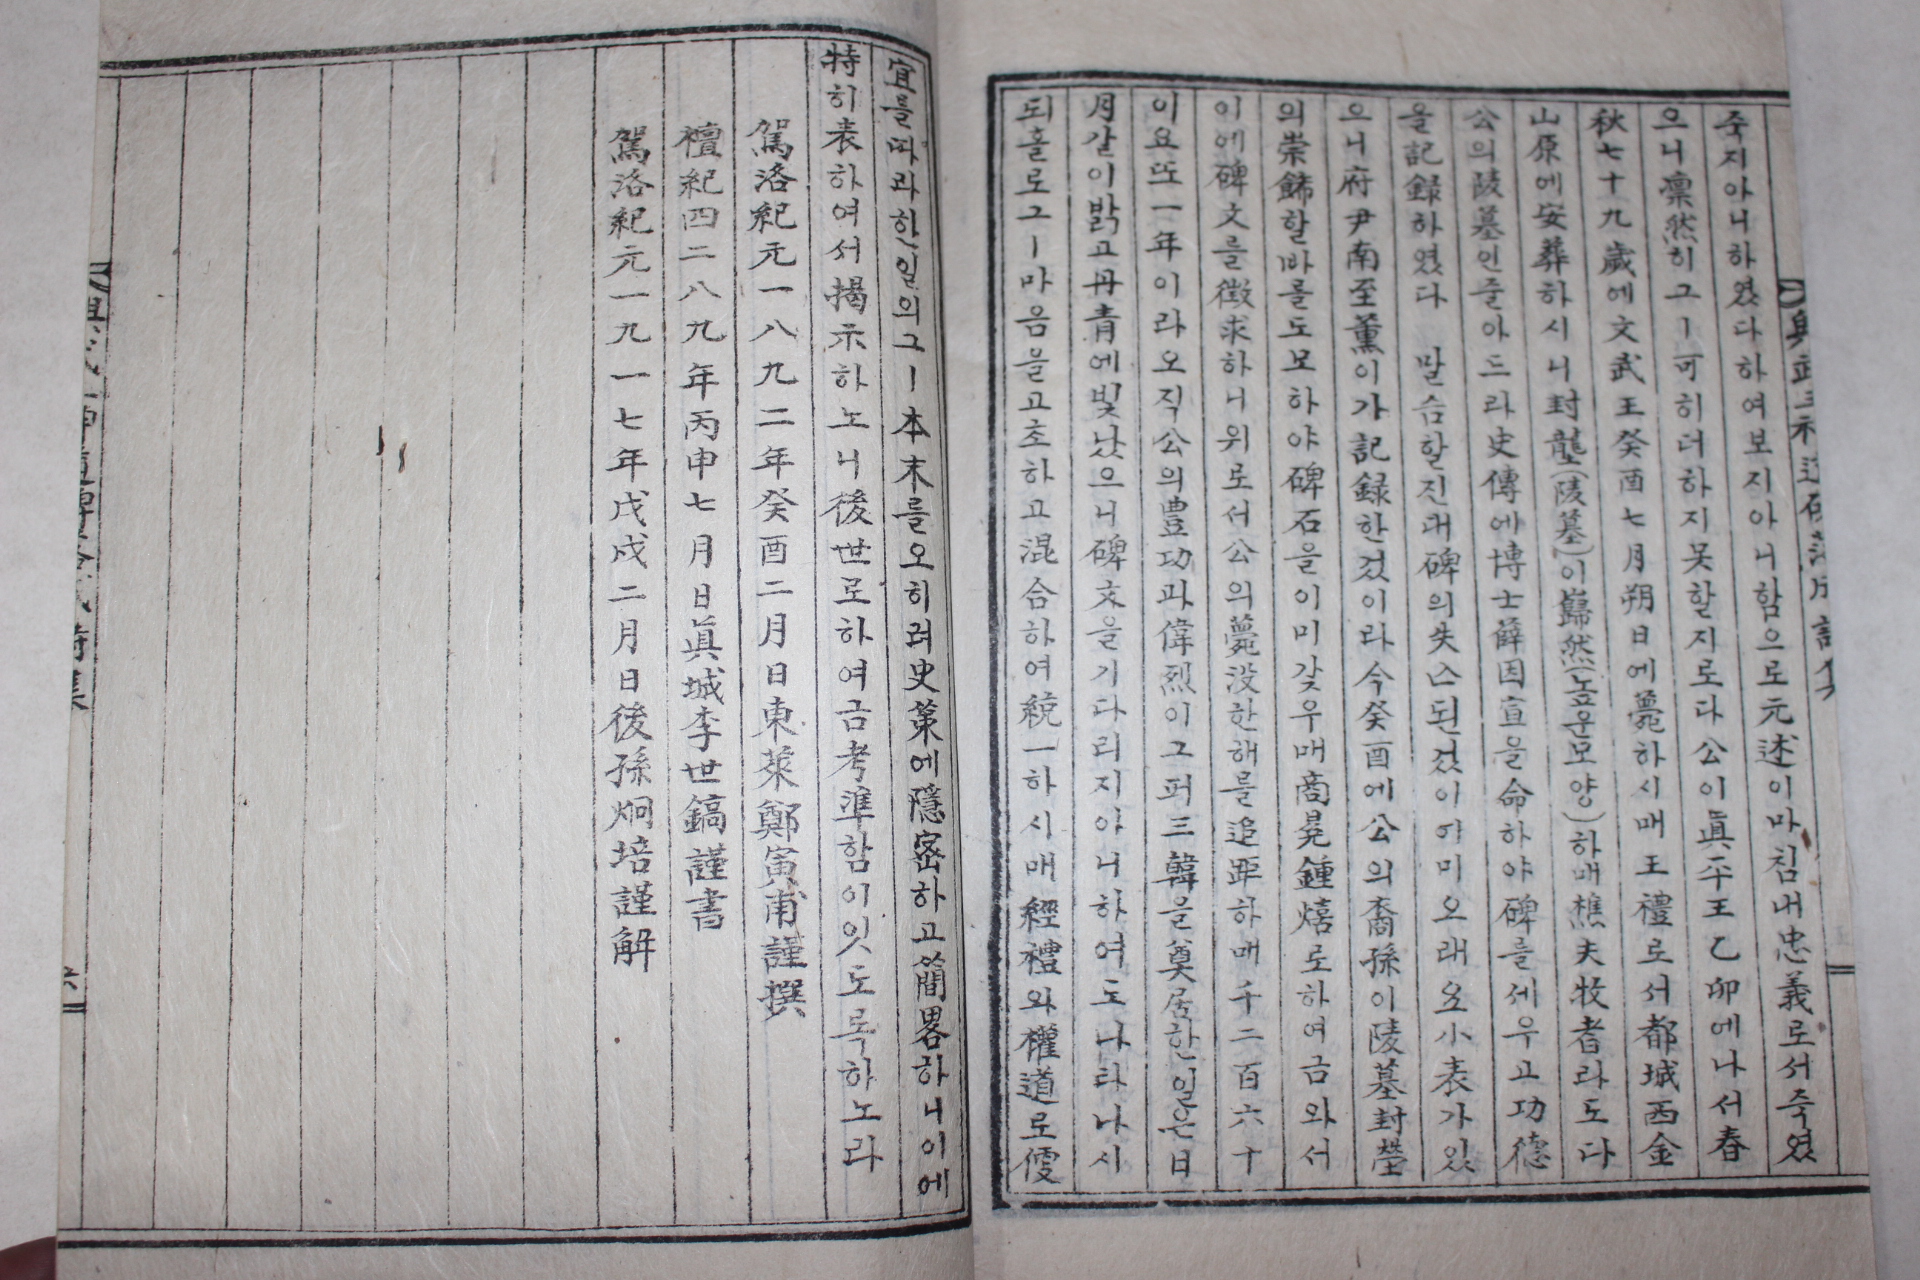 죽지아니하였다하여보지아니함으로元述이마침내忠義로서죽였
으니凛然히그ㅣ可히더하지못할지로다公이眞平王乙卯에나서春
秋七十九歲에文武王癸酉七月朔日에薨하시매王禮로서都城西金
山原에安葬하시니封壟(陵墓)이巋然(높운모양)하매樵夫牧者라도다
公의陵墓인줄아드라史傳에博士薛因宣을命하야碑를세우고功德
을記録하였다 말슴할진대碑의失亡된겄이이미오래요小表가있
으니府尹南至薰이가記録한겄이라今癸酉에公의裔孫이陵墓封瑩
의崇餙할바를도모하야碑石을이미갖우매商晃鍾熺로하여금와서
이에碑文를徵求하니위로서公의薨没한해를追距하매千二百六十
이요또一年이라오직公의豊功과偉烈이그퍼三韓을奠居한일은日
月갈이밝고丹青에빛났으니碑文을기다리지아니하여도나타나시
되홀로그ㅣ마음을고초하고混合하여統一하시매經禮와權道로使
宜를따라한일의그ㅣ本末를오히려史策에隱密하고簡畧하니이에
特히表하여서揭示하노니後世로하여금考準함이잇도록하노라
駕洛紀元一八九二年癸酉二月日東萊鄭寅甫謹撰
檀紀四二八九年丙申七月日眞城李世鎬謹書
駕洛紀元一九一七年戊戌二月日後孫炯培謹解
六